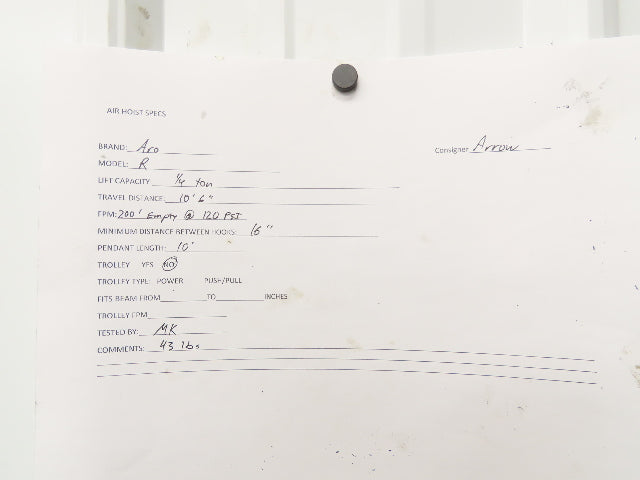 AIR HOIST SPECS
BRAND: Aro
Consigner Arrow
MODEL: R
LIFT CAPACITY 1/4 ton
TRAVEL DISTANCE: 10' 6"
FPM: 200' Empty @ 120 PSI
MINIMUM DISTANCE BETWEEN HOOKS: 16"
PENDANT LENGTH: 10'
TROLLEY YES NO
TROLLEY TYPE: POWER PUSH/PULL
FITS BEAM FROM TO INCHES
TROLLEY FPM
TESTED BY: MK
COMMENTS: 43 lbs